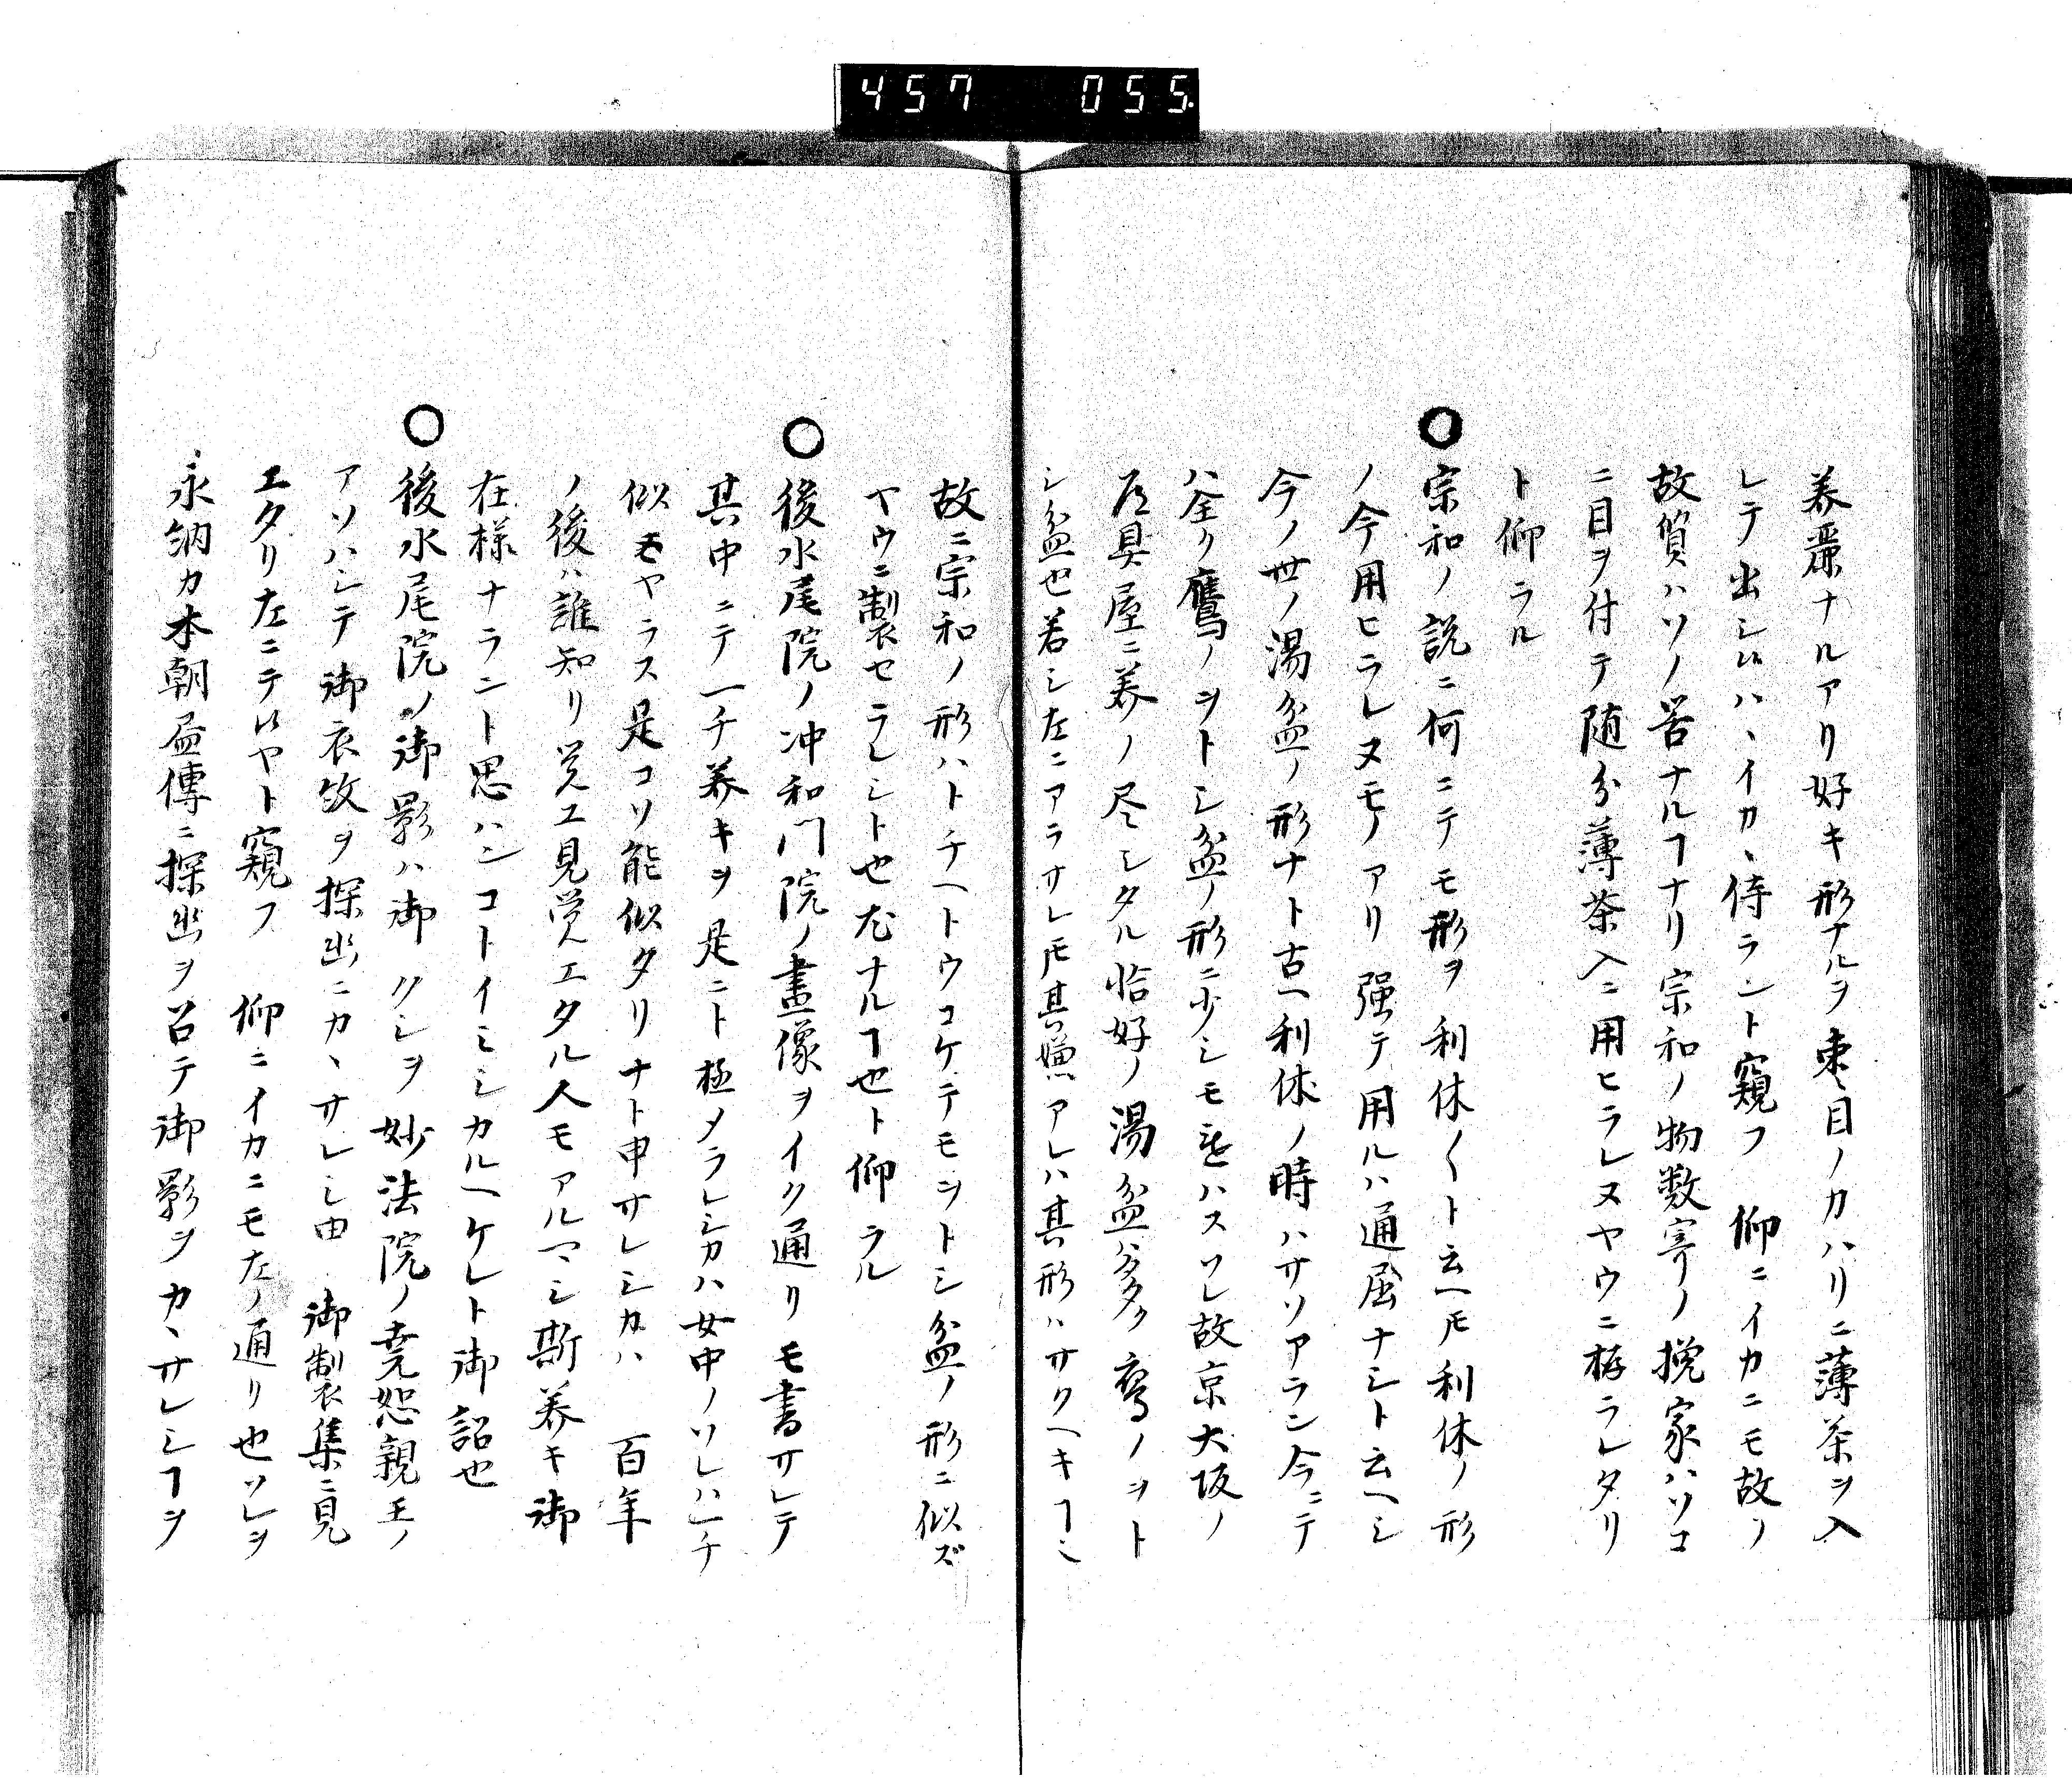 457 055
養廉ナルアリ好キ形ナルヲ棗目ノカハリニ薄茶ヲ入
レテ出シ候ハヽイカヽ侍ラント窺フ 仰ニイカニモ故ノ
故質ハソノ筈ナルヿナリ宗和ノ物数寄ノ挽家ハソコ
ニ目ヲ付テ随分薄茶入ニ用ヒラレヌヤウニ拵ラレタリ
ト仰ラル
〇宗和ノ説ニ何ニテモ形ヲ利休〱ト云ヘ𪜈利休ノ形
ノ今用ヒラレヌモノアリ強テ用ルハ通屈ナシト云ヘシ
今ノ世ノ湯盆ノ形ナト古ヘ利休ノ時ハサソアラン今ニテ
ハ全ク鷹ノヲトシ盆ノ形ニ少シモ違ハスソレ故京大坂ノ
道具屋ニ養ノ尽シタル恰好ノ湯盆多ク鷹ノヲト
シ盆也若シ左ニアラサレ𪜈其嫌アレハ其形ハサクヘキヿ也
故ニ宗和ノ形ハトチヘトウコケテモヲトシ盆ノ形ニ似ズ
ヤウニ製セラレシト也尤ナルヿ也ト仰ラル
〇後水尾院ノ冲和門院ノ畫像ヲイク通リモ書サレテ
其中ニテ一チ養キヲ是ニト極メラレシカハ女中ノソレハ一チ
似モヤラス是コソ能似タリナト申サレシカハ 百年
ノ後ハ誰知リ覚エ見覚エタル人モアルマシ斯養キ御
在様ナラント思ハンコトイミシカルヘケレト御詔也
〇後水尾院ノ御影ハ御クシヲ妙法院ノ堯恕親王ノ
アソハシテ御衣紋ヲ探幽ニカヽサレシ由 御製集ニ見
エタリ左ニテ候ヤト窺フ 仰ニイカニモ左ノ通リ也ソレヲ
永納カ本朝畫傳ニ探幽ヲ召テ御影ヲカヽサレシヿヲ